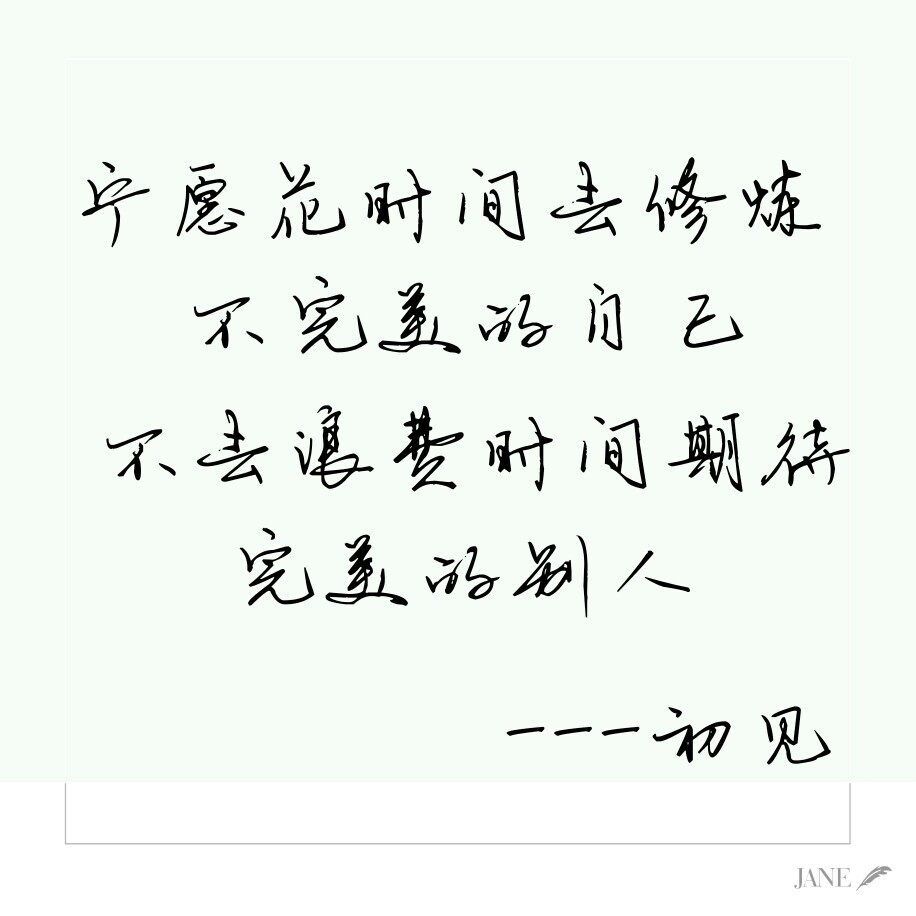 宁愿花时间去修炼
不完美的自己
不去浪费时间期待
完美的别人
---初见
JANE